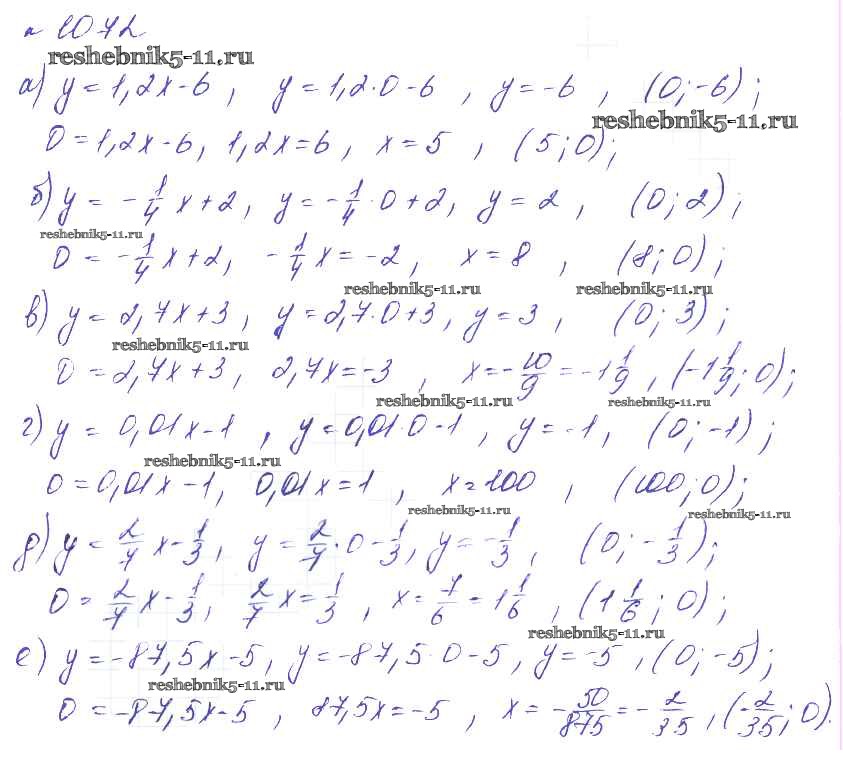 № 1072
reshebnik5-11.ru
а) y = 1,2x - 6 , y = 1,2·0 - 6 , y = -6 , (0; -6);
reshebnik5-11.ru
0 = 1,2x - 6, 1,2x = 6 , x = 5 , (5; 0);
б) y = -1/4 x + 2, y = -1/4 · 0 + 2, y = 2 , (0; 2);
reshebnik5-11.ru
0 = -1/4 x + 2, -1/4 x = -2 , x = 8 , (8; 0);
reshebnik5-11.ru reshebnik5-11.ru
в) y = 2,7x + 3, y = 2,7·0 + 3, y = 3 , (0; 3);
reshebnik5-11.ru
0 = 2,7x + 3, 2,7x = -3 , x = -10/9 = -1 1/9 , (-1 1/9; 0);
reshebnik5-11.ru reshebnik5-11.ru
г) y = 0,01x - 1 , y = 0,01·0 - 1 , y = -1, (0; -1);
reshebnik5-11.ru
0 = 0,01x - 1, 0,01x = 1 , x = 100 , (100; 0);
reshebnik5-11.ru reshebnik5-11.ru
д) y = 2/7 x - 1/3, y = 2/7 · 0 - 1/3, y = -1/3 , (0; -1/3);
0 = 2/7 x - 1/3, 2/7 x = 1/3 , x = 7/6 = 1 1/6 , (1 1/6; 0);
reshebnik5-11.ru
е) y = -87,5x - 5, y = -87,5·0 - 5, y = -5 , (0; -5);
reshebnik5-11.ru
0 = -87,5x - 5 , 87,5x = -5 , x = -50/875 = -2/35 , (-2/35; 0).